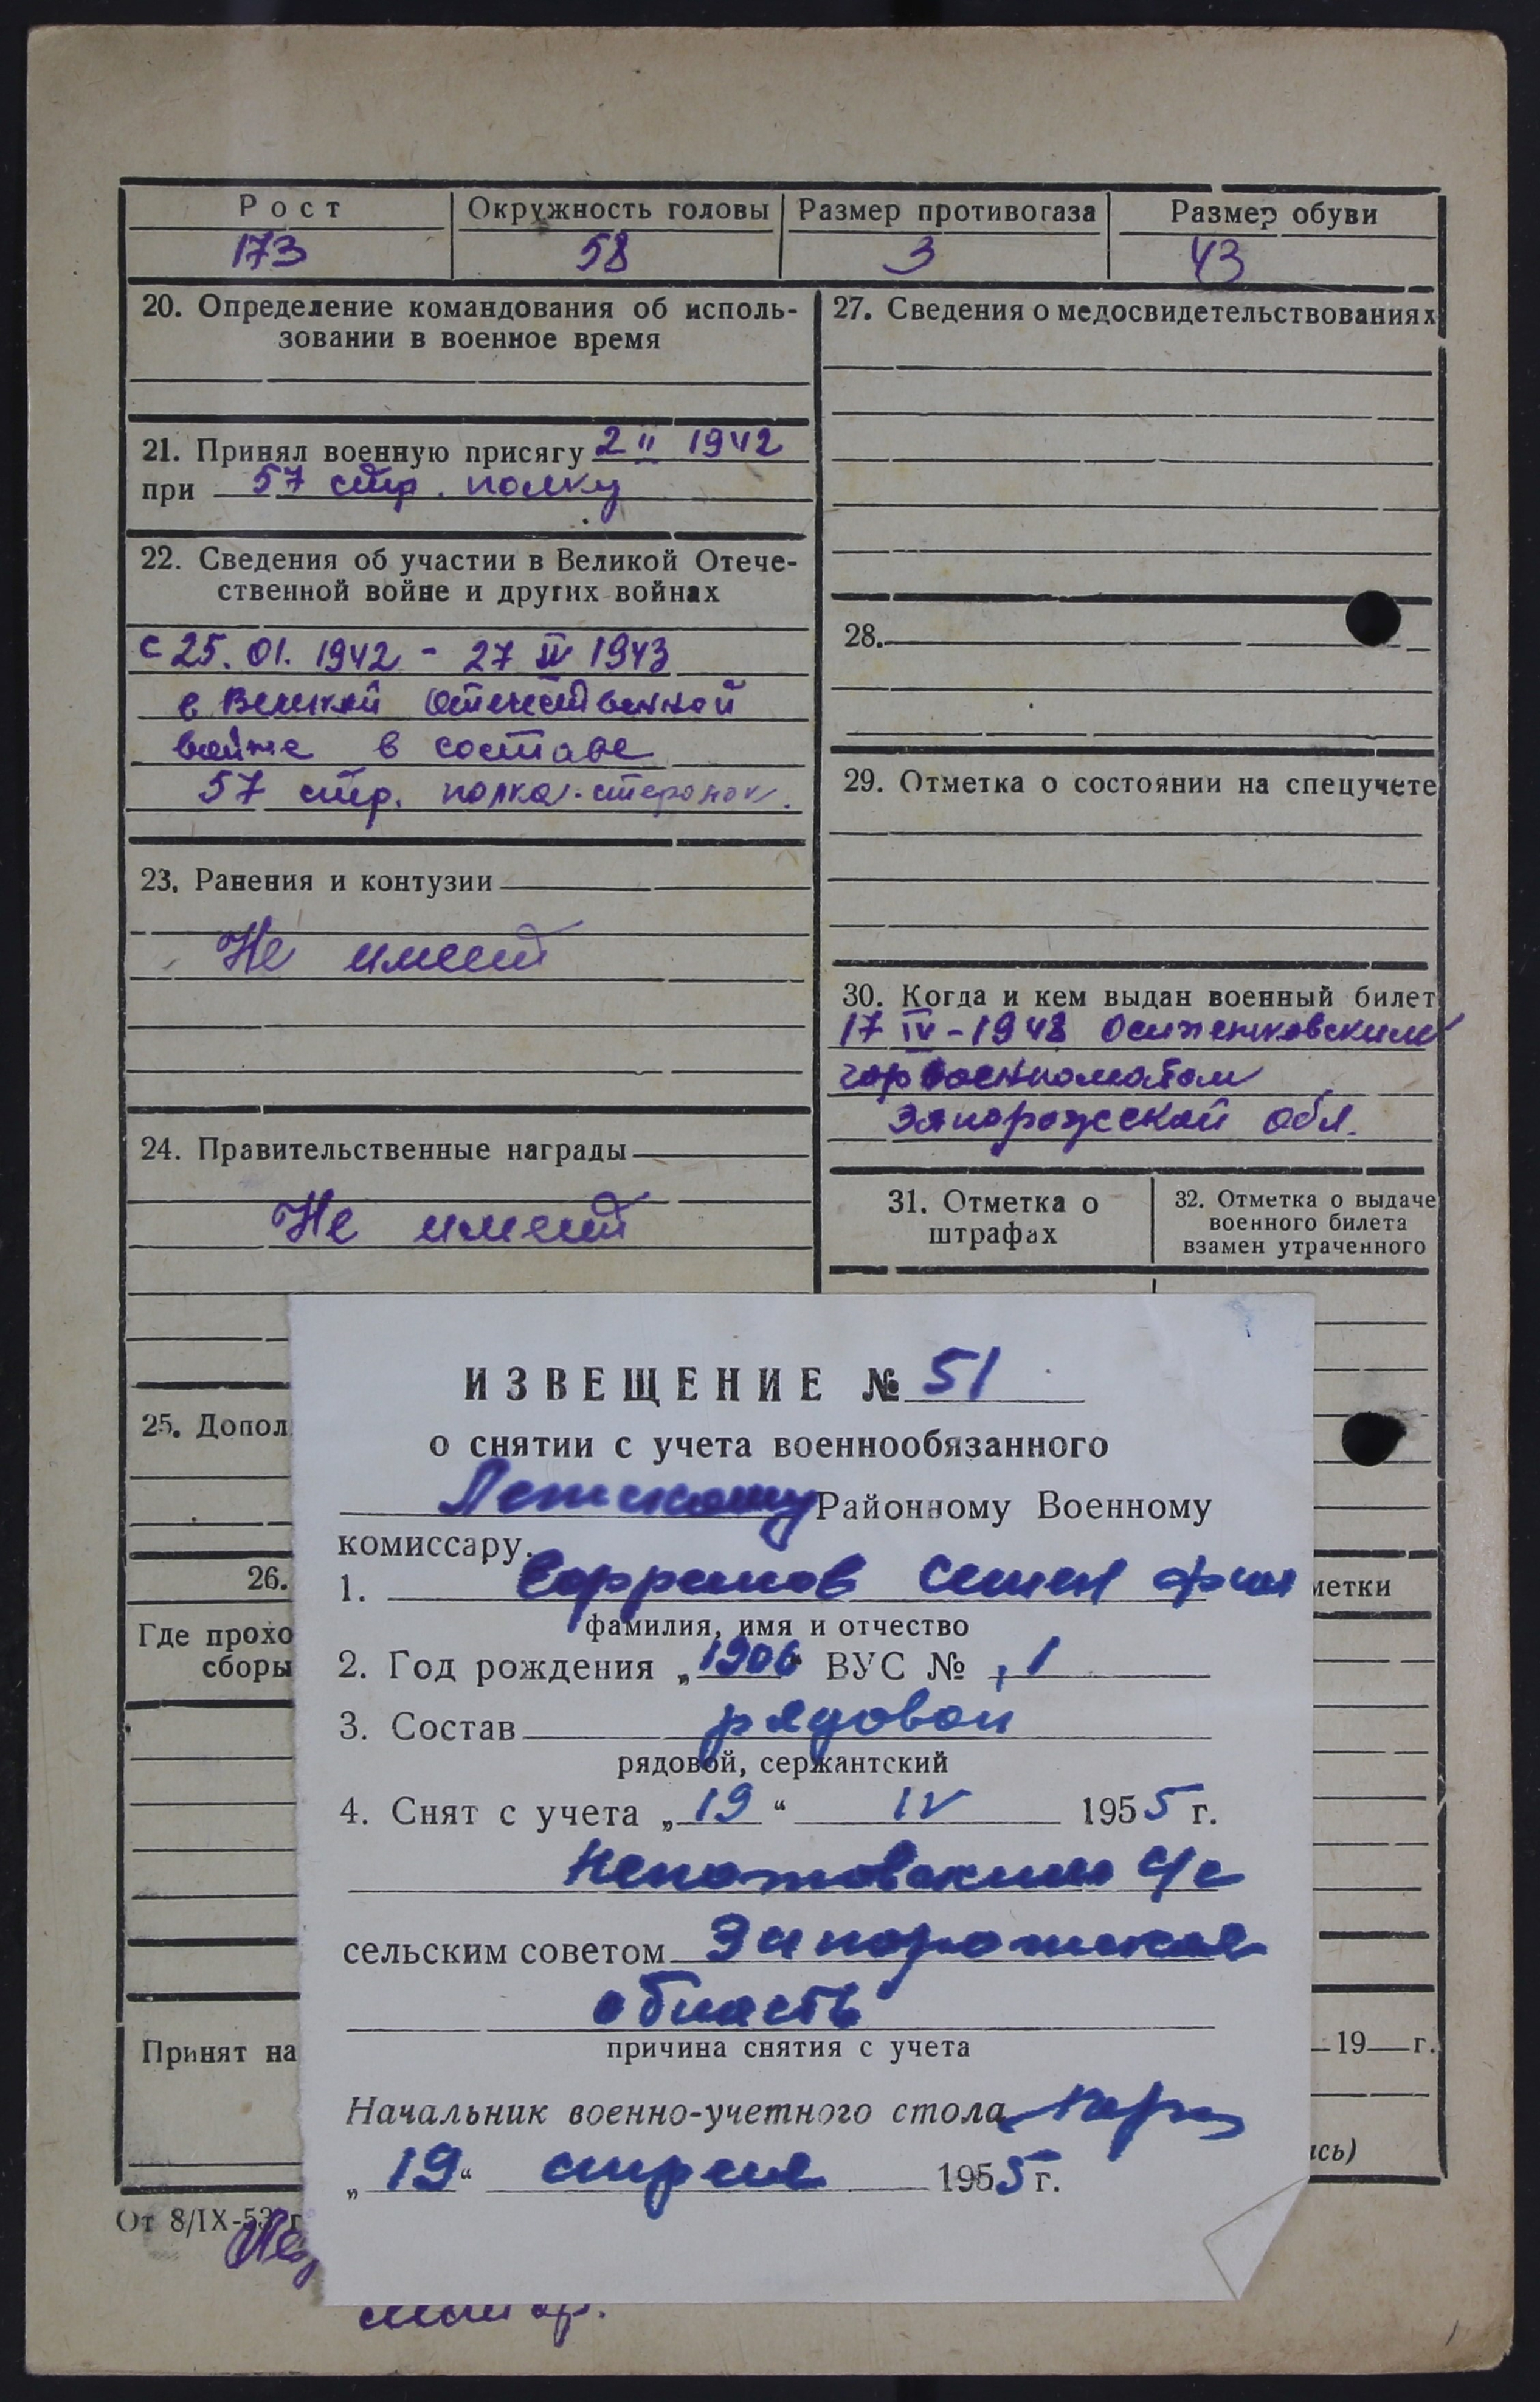 Рост Окружность головы Размер противогаза Размер обуви
173 58 3 43
20. Определение командования об исполь-
зовании в военное время
21. Принял военную присягу 2 II 1942
при 57 стр. полку
22. Сведения об участии в Великой Отече-
ственной войне и других войнах
с 25. 01. 1942 - 27 II 1943
в Великой Отечественной
войне в составе
57 стр. полка
23. Ранения и контузии
Не имеет
24. Правительственные награды
Не имеет
25. Допол
26.
Где прохо
сборы
Принят на
От 8/IX-53 г
27. Сведения о медосвидетельствованиях
28.
29. Отметка о состоянии на спецучете
30. Когда и кем выдан военный билет
17 IV - 1948 Осипенковским
горвоенкоматом
Запорожской обл.
31. Отметка о
штрафах
32. Отметка о выдаче
военного билета
взамен утраченного
метки
19 г.
ись)
ИЗВЕЩЕНИЕ № 51
о снятии с учета военнообязанного
Районному Военному
комиссару.
1. Семен
фамилия, имя и отчество
2. Год рождения „1906“ ВУС № 1
3. Состав рядовой
рядовой, сержантский
4. Снят с учета „19“ IV 1955 г.
с/с
сельским советом Запорожская
область
причина снятия с учета
Начальник военно-учетного стола
„19“ апреля 1955 г.